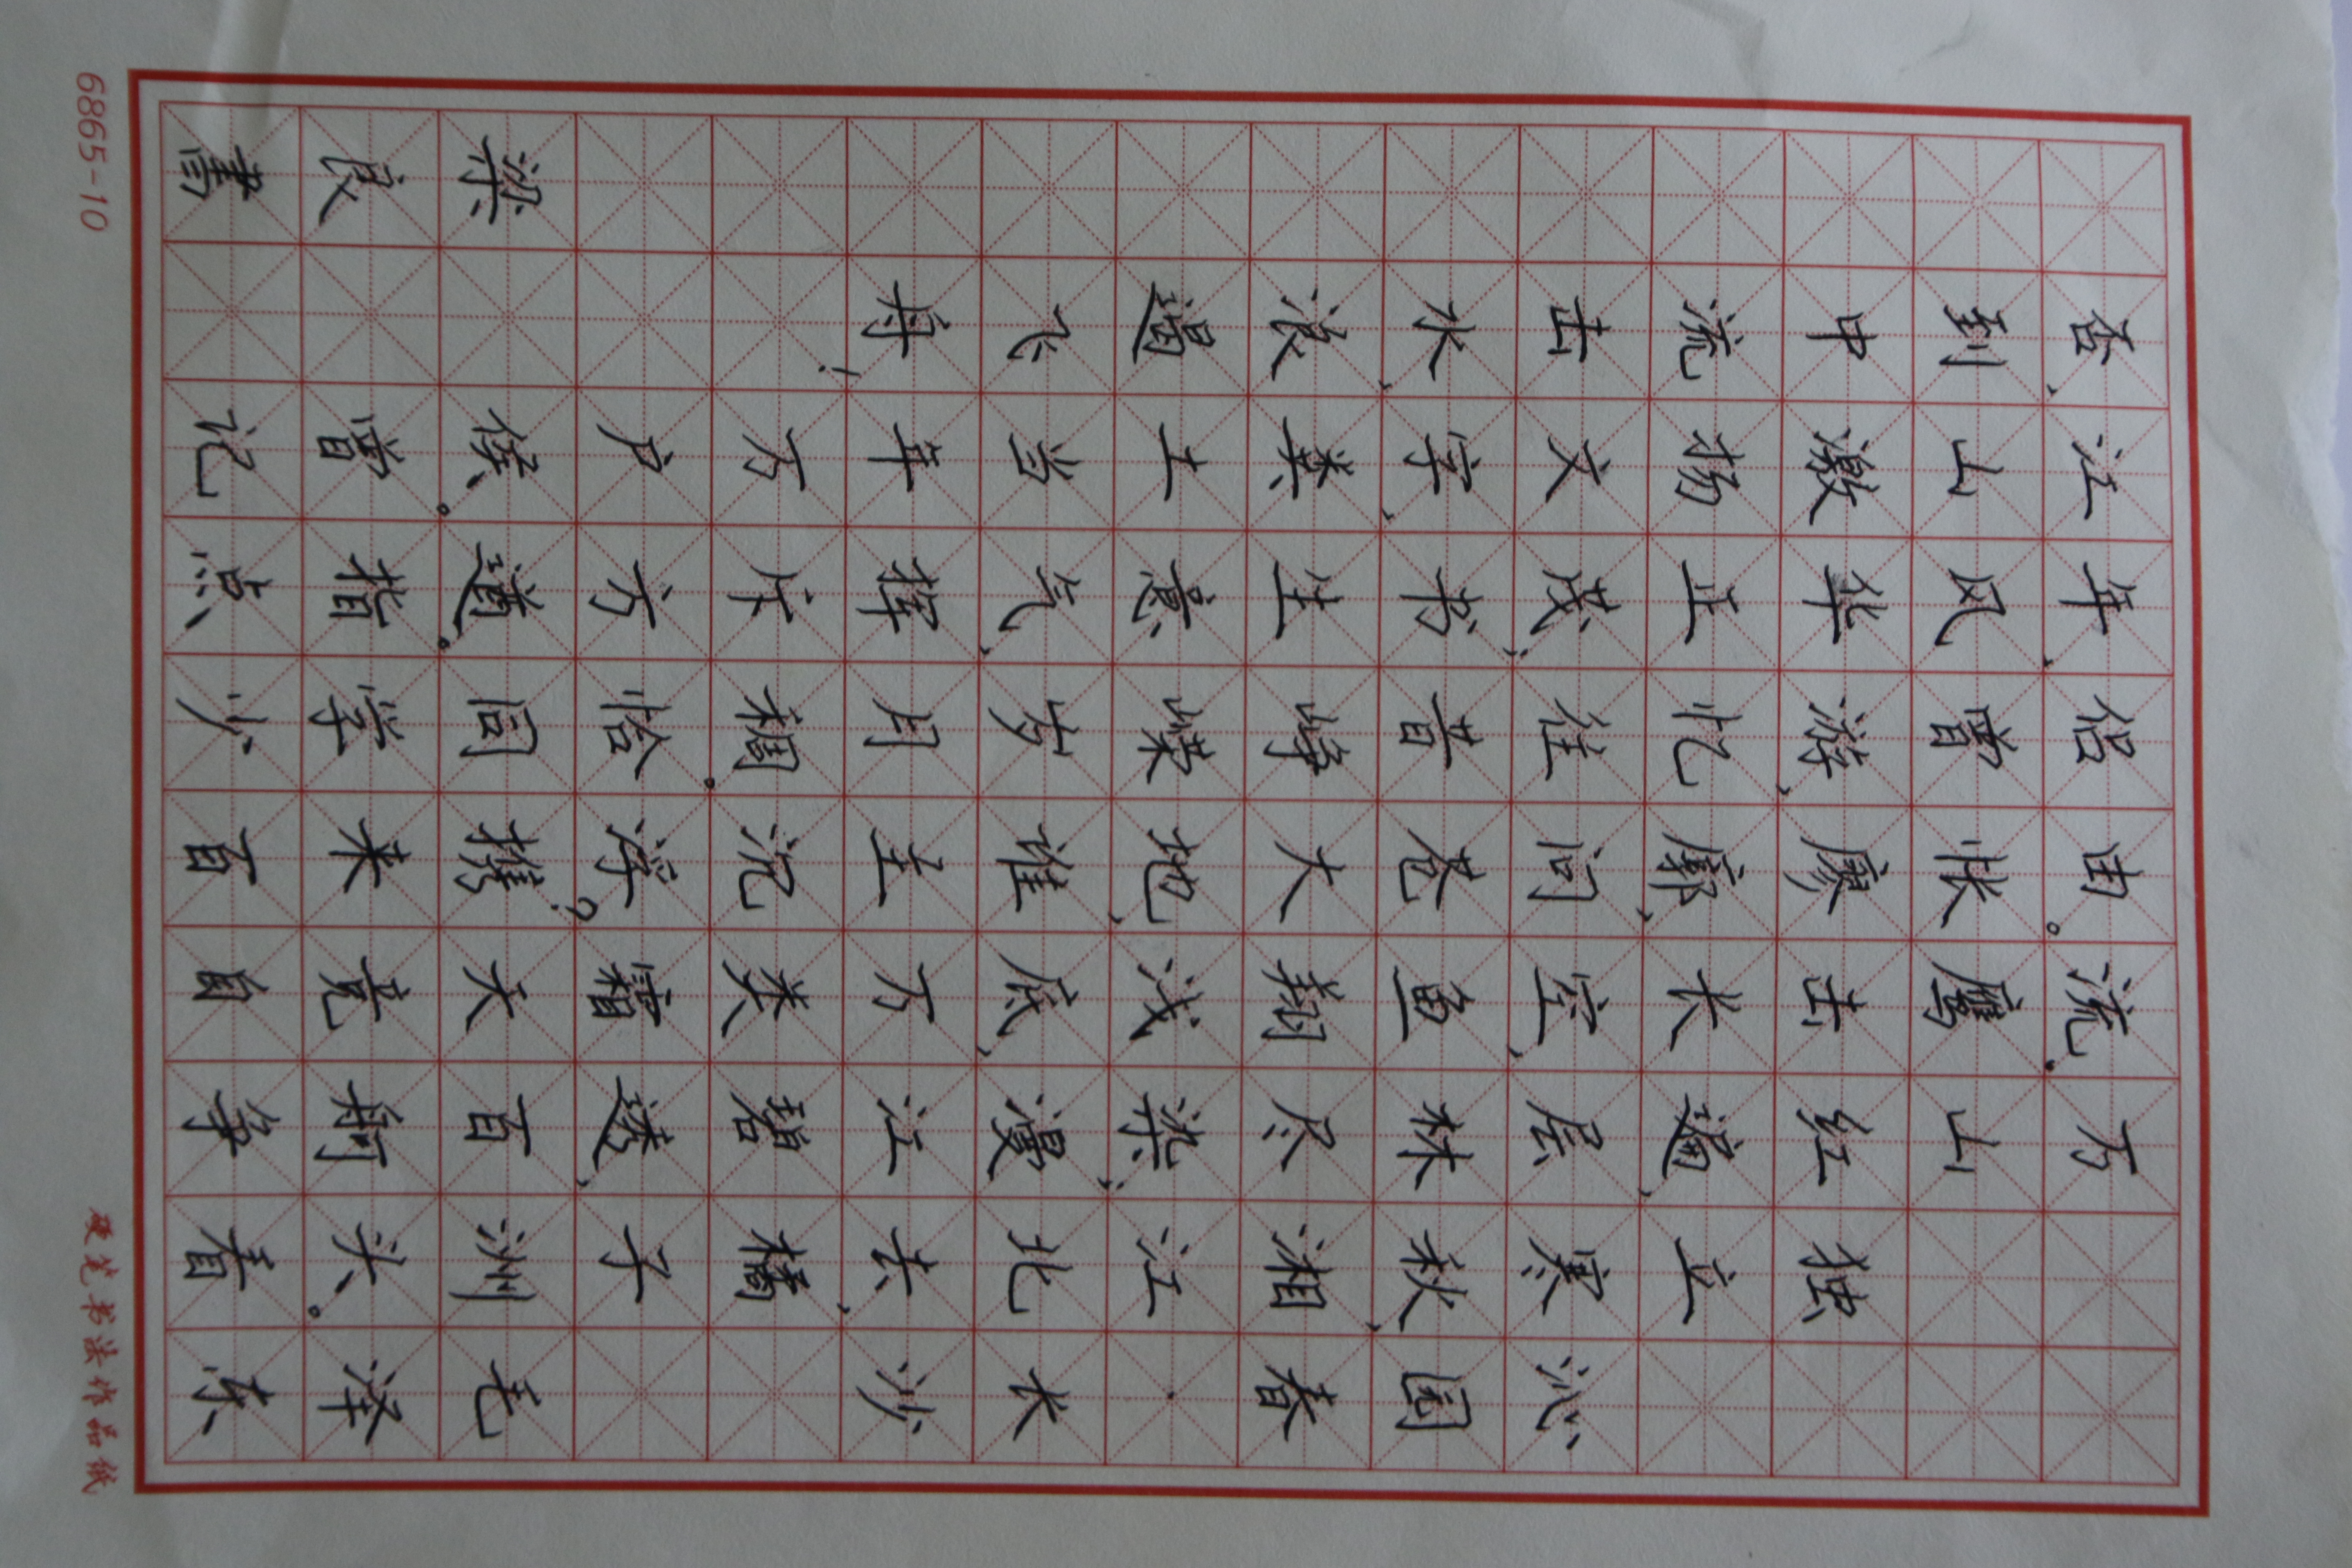 沁园春·长沙 毛泽东
独立寒秋,湘江北去,橘子洲头。看
万山红遍,层林尽染;漫江碧透,百舸争
流。鹰击长空,鱼翔浅底,万类霜天竞自
由。怅廖廓,问苍大地,谁主沉浮?携来百
侣曾游,忆往昔峥嵘岁月稠。恰同学少
年,风华正茂;书生意气,挥斥方遒。指点
江山激扬文字,粪土当年万户侯。曾记
否,到中流击水,浪遏飞舟!
梁良書
硬笔书法作品纸
6865-10